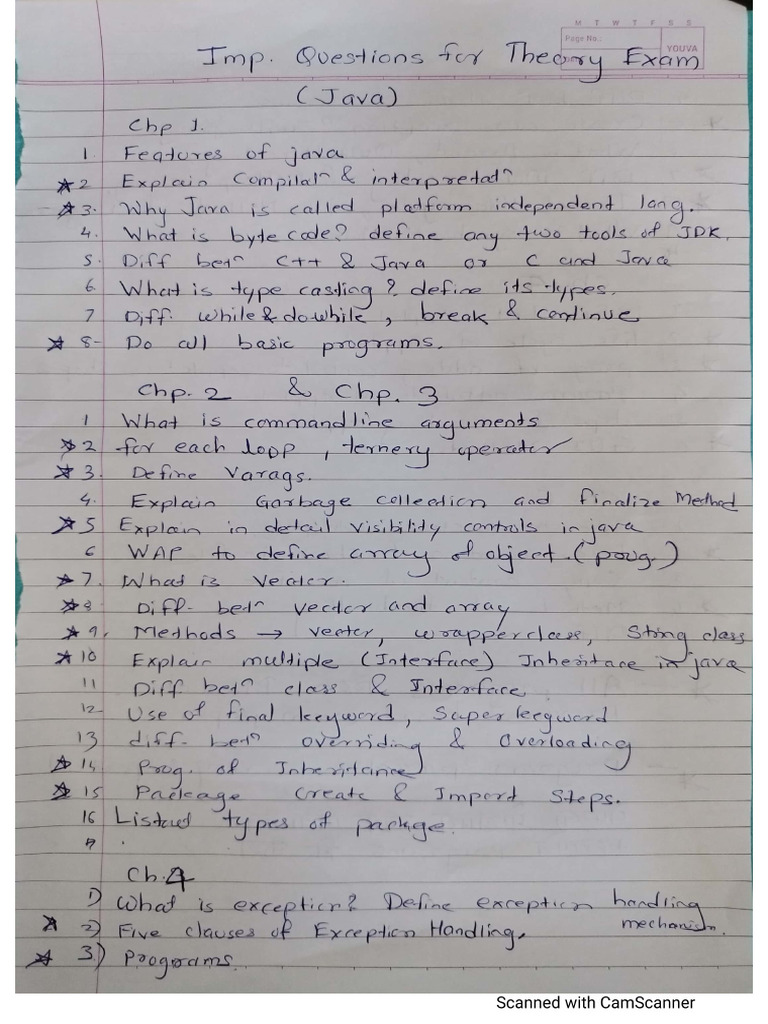 M T W T F S S
Page No.:
YOUVA
Imp. Questions for Theory Exam
(Java)
Chp 1.
1. Features of java
★2 Explain Compilatn & interpretatn
★3. Why Java is called platform independent lang.
4. What is bytecode? define any two tools of JDK.
5. Diff betn C++ & Java or C and Java
6. What is type casting? define its types.
7 Diff. while & dowhile, break & continue
★8- Do all basic programs.
Chp. 2 & Chp. 3
1 What is commandline arguments
★2 for each loop, ternery operator
★3. Define Varags.
4. Explain Garbage collection and finalize Method
★5 Explain in detail visibility controls in java
6 WAP to define array of object. (prog.)
★7. What is Vector.
★8 Diff- betn vector and array
★9. Methods → vector, wrapperclass, String class
★10 Explain multiple (Interface) Inheritace in java
11 Diff betn class & Interface
12- Use of final keyword, Super keyword
13 diff- betn overriding & overloading
★14 Prog. of Inheritance
★15 Package Create & Import Steps.
16 Listout types of package.
Ch.4
1) What is exception? Define exception handling mechanism.
★2) Five clauses of Exception Handling.
★3.) Programs.
Scanned with CamScanner